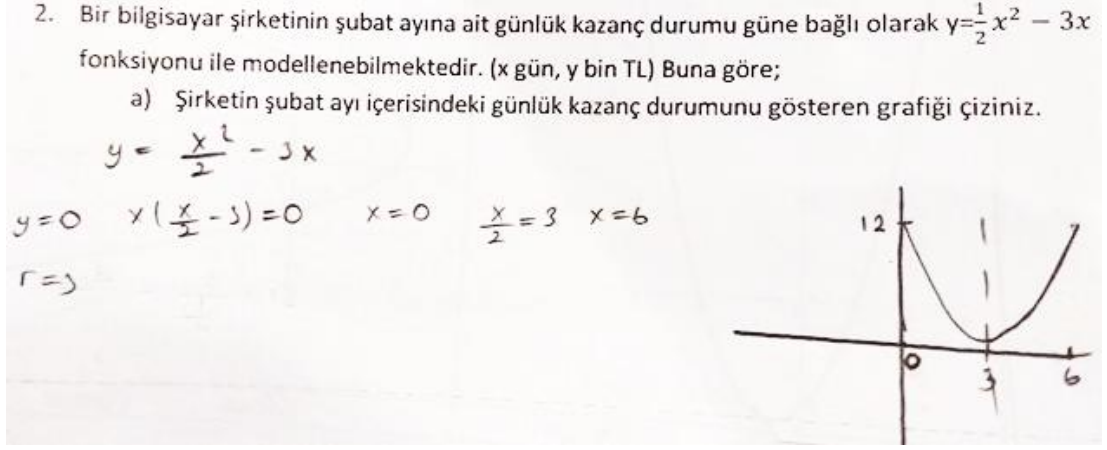 2. Bir bilgisayar şirketinin şubat ayına ait günlük kazanç durumu güne bağlı olarak y=\frac{1}{2}x² − 3x
fonksiyonu ile modellenebilmektedir. (x gün, y bin TL) Buna göre;
a) Şirketin şubat ayı içerisindeki günlük kazanç durumunu gösteren grafiği çiziniz.
y = \frac{x²}{2} - 3x
y=0 x(\frac{x}{2} - 3)=0 x=0 \frac{x}{2}=3 x=6
r=3
12
0 3 6